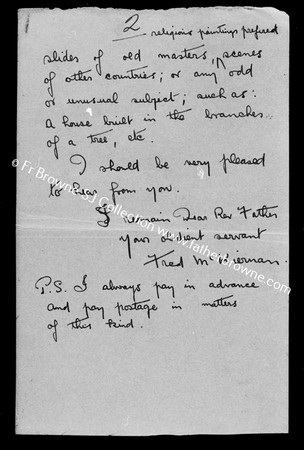 2 religious paintings prefered
slides of old masters, scenes
of other countries; or any odd
or unusual subject; such as:
A house built in the branches
of a tree, etc.
I should be very pleased
to hear from you.
I remain Dear Rev Father
your obdient servant
Fred McKiernan.
P.S. I always pay in advance
and pay postage in matters
of this kind.